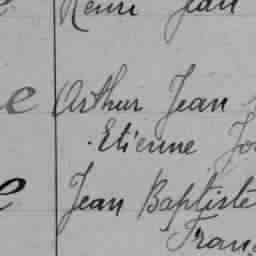 Henri Jean
e Arthur Jean
Etienne Jo
e Jean Baptiste
Fran